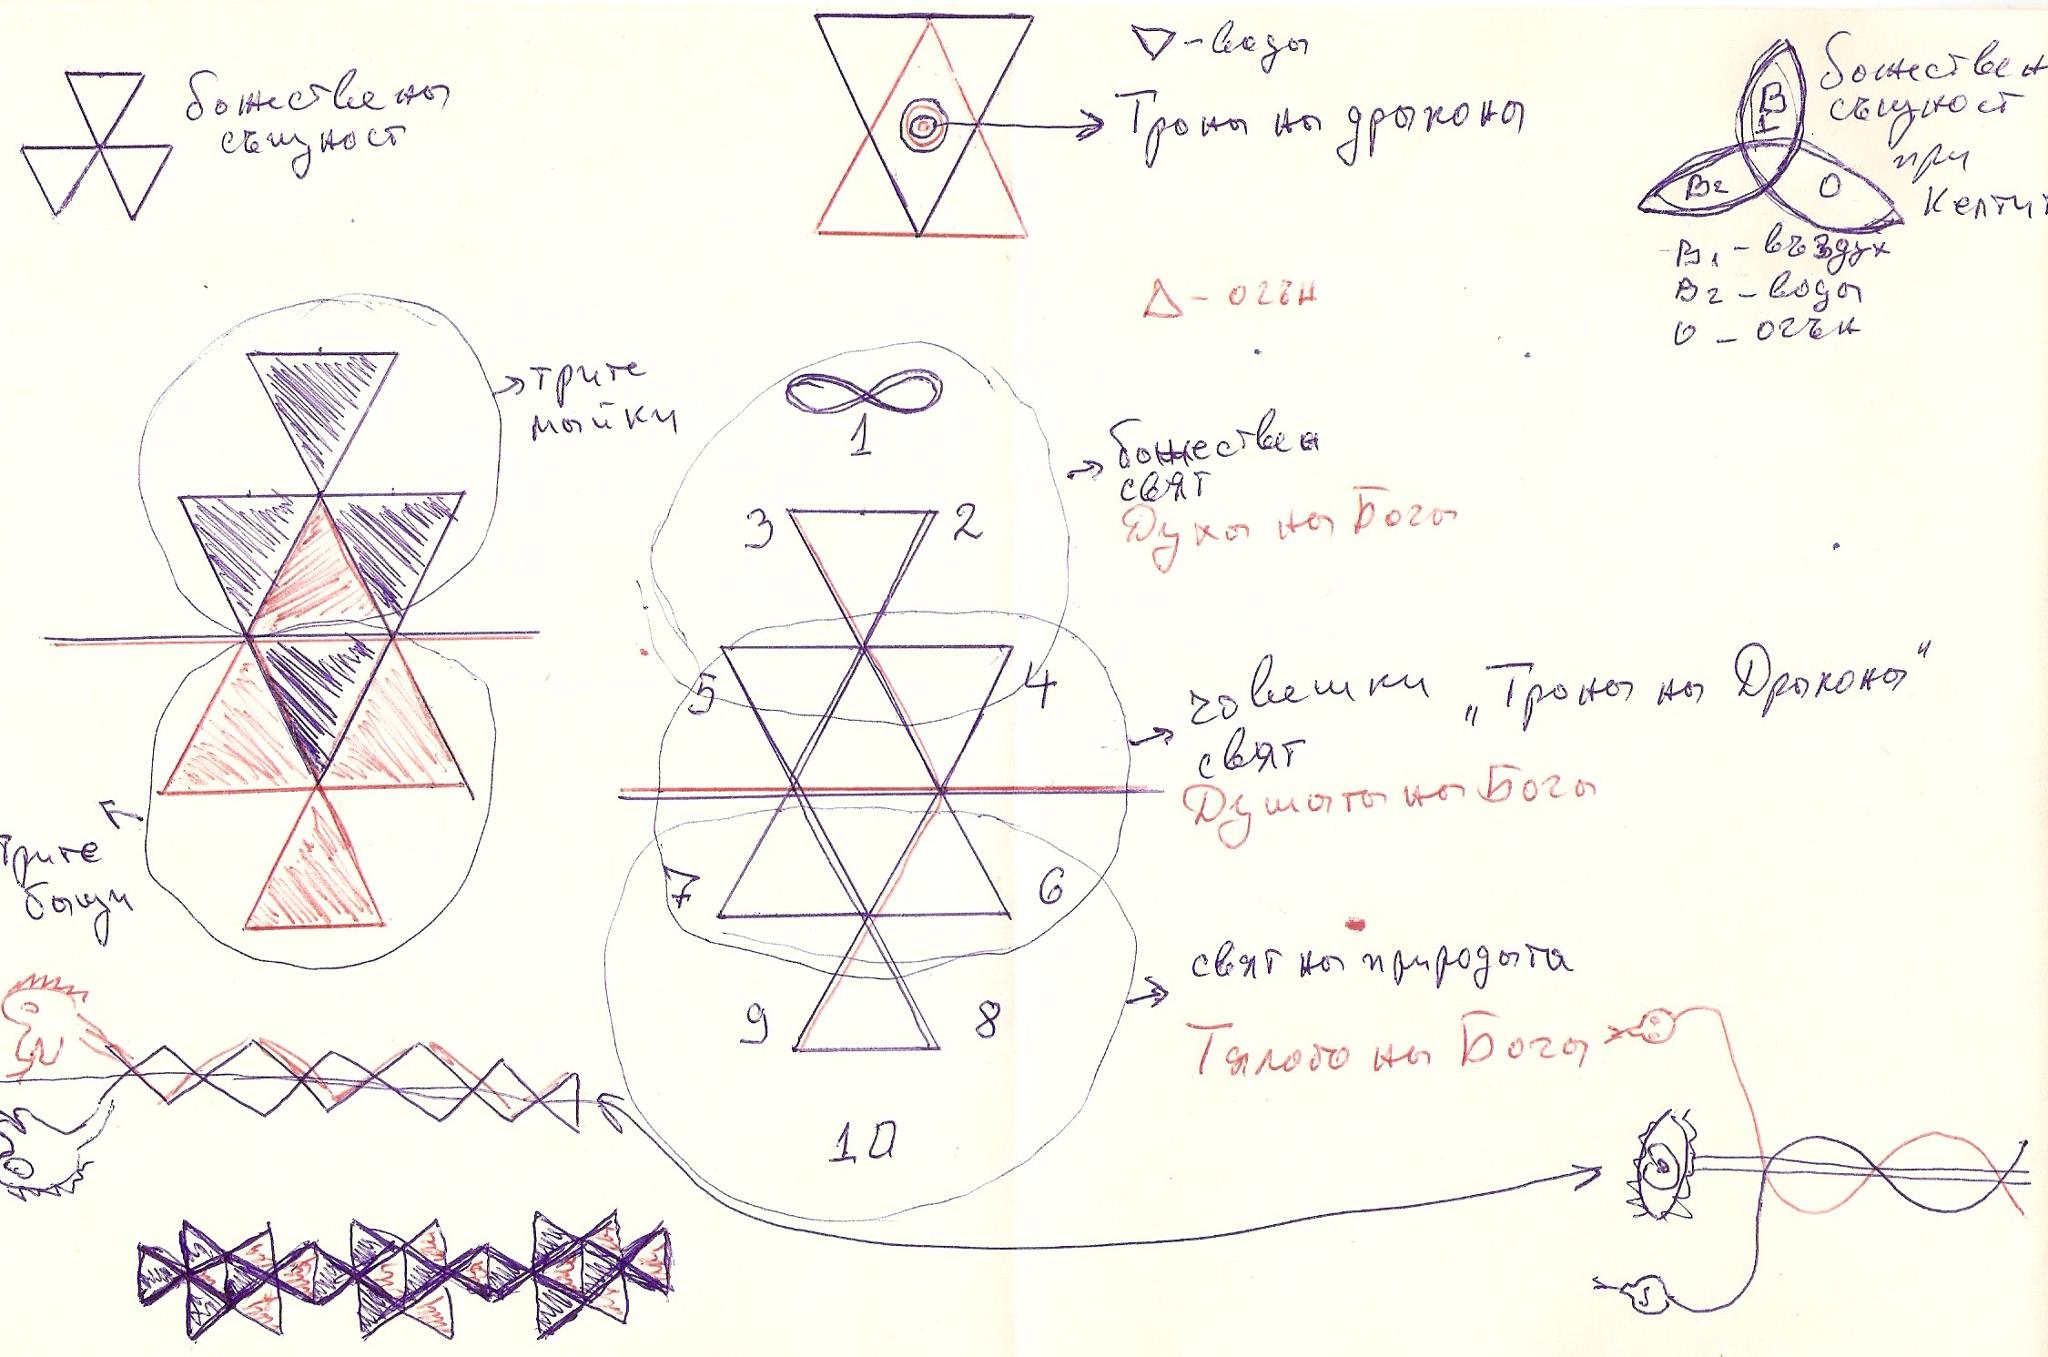 божествена
същност
▽ - вода
Трона на дракона
божествен
същност
при
Келтит
В1
В2
О
В1 - въздух
В2 - вода
О - огън
△ - огън
трите
майки
1
божествен
свят
Духа на Бога
3
2
5
4
човешки „Трона на Дракона“
свят
Душата на Бога
7
6
трите
бащи
свят на природата
9
8
Тялото на Бога
10